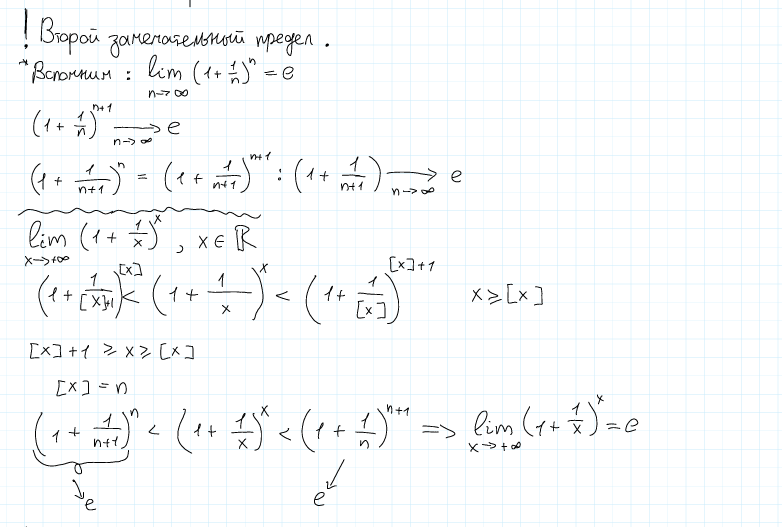 ! Второй замечательный предел.
* Вспомним: lim_{n→∞} (1 + 1/n)^n = e
(1 + 1/n)^{n+1} →_{n→∞} e
(1 + 1/(n+1))^n = (1 + 1/(n+1))^{n+1} : (1 + 1/(n+1)) →_{n→∞} e
lim_{x→+∞} (1 + 1/x)^x, x ∈ ℝ
(1 + 1/([x]+1))^{[x]} < (1 + 1/x)^x < (1 + 1/[x])^{[x]+1} x ≥ [x]
[x]+1 ≥ x ≥ [x]
[x] = n
(1 + 1/(n+1))^n < (1 + 1/x)^x < (1 + 1/n)^{n+1} => lim_{x→+∞} (1 + 1/x)^x = e
e e